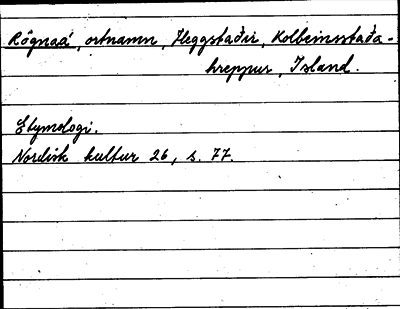 Rögnaá, ortnamn, Heggstaðir, Kolbeinsstaða-
hreppur, Island.
Etymologi.
Nordisk kultur 26, s. 77